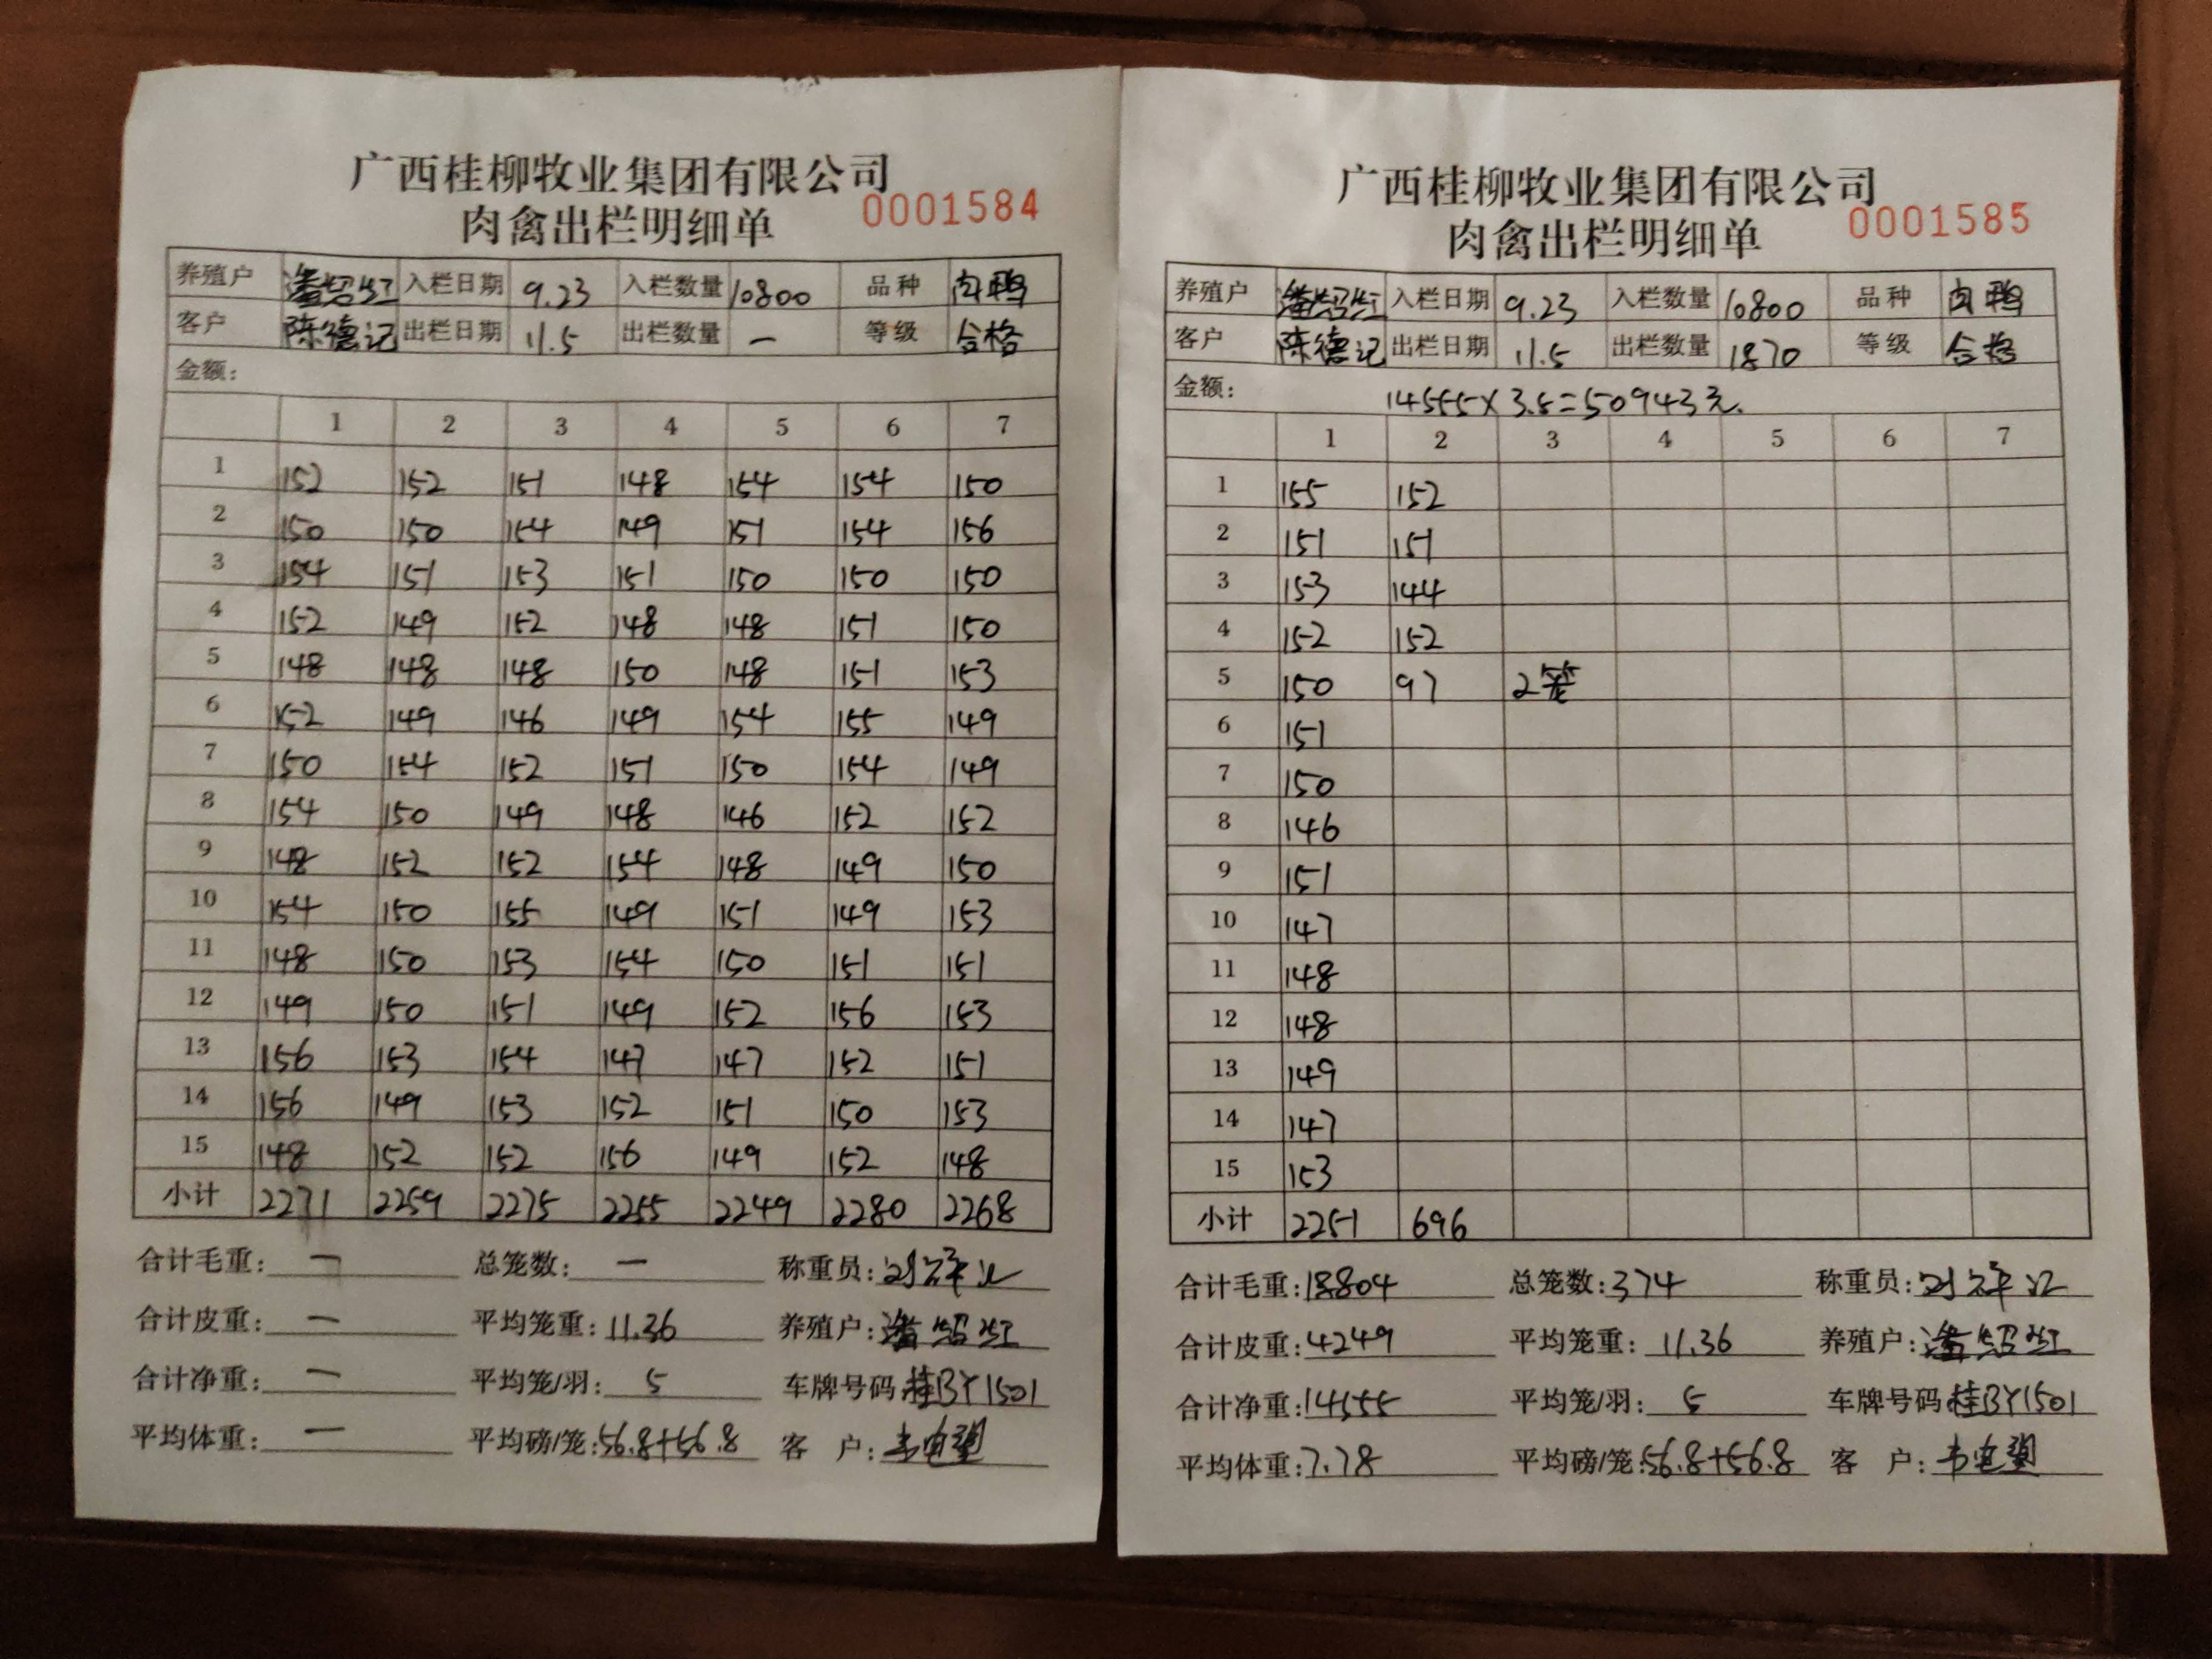 广西桂柳牧业集团有限公司
肉禽出栏明细单 0001584
养殖户 潘绍红 入栏日期 9.23 入栏数量 10800 品种 肉鸭
客户 陈德记 出栏日期 11.5 出栏数量 一 等级 合格
金额:
1 2 3 4 5 6 7
1 152 152 151 148 154 154 150
2 150 150 154 149 151 154 156
3 154 151 153 151 150 150 150
4 152 149 152 148 148 151 150
5 148 148 148 150 148 151 153
6 152 149 146 149 154 155 149
7 150 154 152 151 150 154 149
8 154 150 149 148 146 152 152
9 148 152 152 154 148 149 150
10 154 150 155 149 151 149 153
11 148 150 153 154 150 151 151
12 149 150 151 149 152 156 153
13 156 153 154 147 147 152 151
14 156 149 153 152 151 150 153
15 148 152 152 156 149 152 148
小计 2271 2259 2275 2255 2249 2280 2268
合计毛重: 一 总笼数: 一 称重员:
合计皮重: 一 平均笼重: 11.36 养殖户: 潘绍红
合计净重: 一 平均笼/羽: 5 车牌号码 桂BY1501
平均体重: 一 平均磅/笼: 56.8+56.8 客 户:
广西桂柳牧业集团有限公司
肉禽出栏明细单 0001585
养殖户 潘绍红 入栏日期 9.23 入栏数量 10800 品种 肉鸭
客户 陈德记 出栏日期 11.5 出栏数量 1870 等级 合格
金额: 14555×3.5=50943元.
1 2 3 4 5 6 7
1 155 152
2 151 151
3 153 144
4 152 152
5 150 97 2笼
6 151
7 150
8 146
9 151
10 147
11 148
12 148
13 149
14 147
15 153
小计 2251 696
合计毛重: 18804 总笼数: 374 称重员:
合计皮重: 4249 平均笼重: 11.36 养殖户: 潘绍红
合计净重: 14555 平均笼/羽: 5 车牌号码 桂BY1501
平均体重: 7.78 平均磅/笼: 56.8+56.8 客 户: